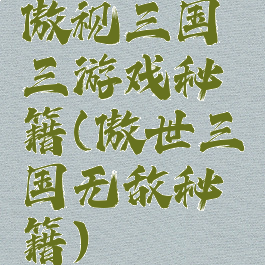 傲视三国
三游戏秘
籍(傲世三
国无敌秘
籍)